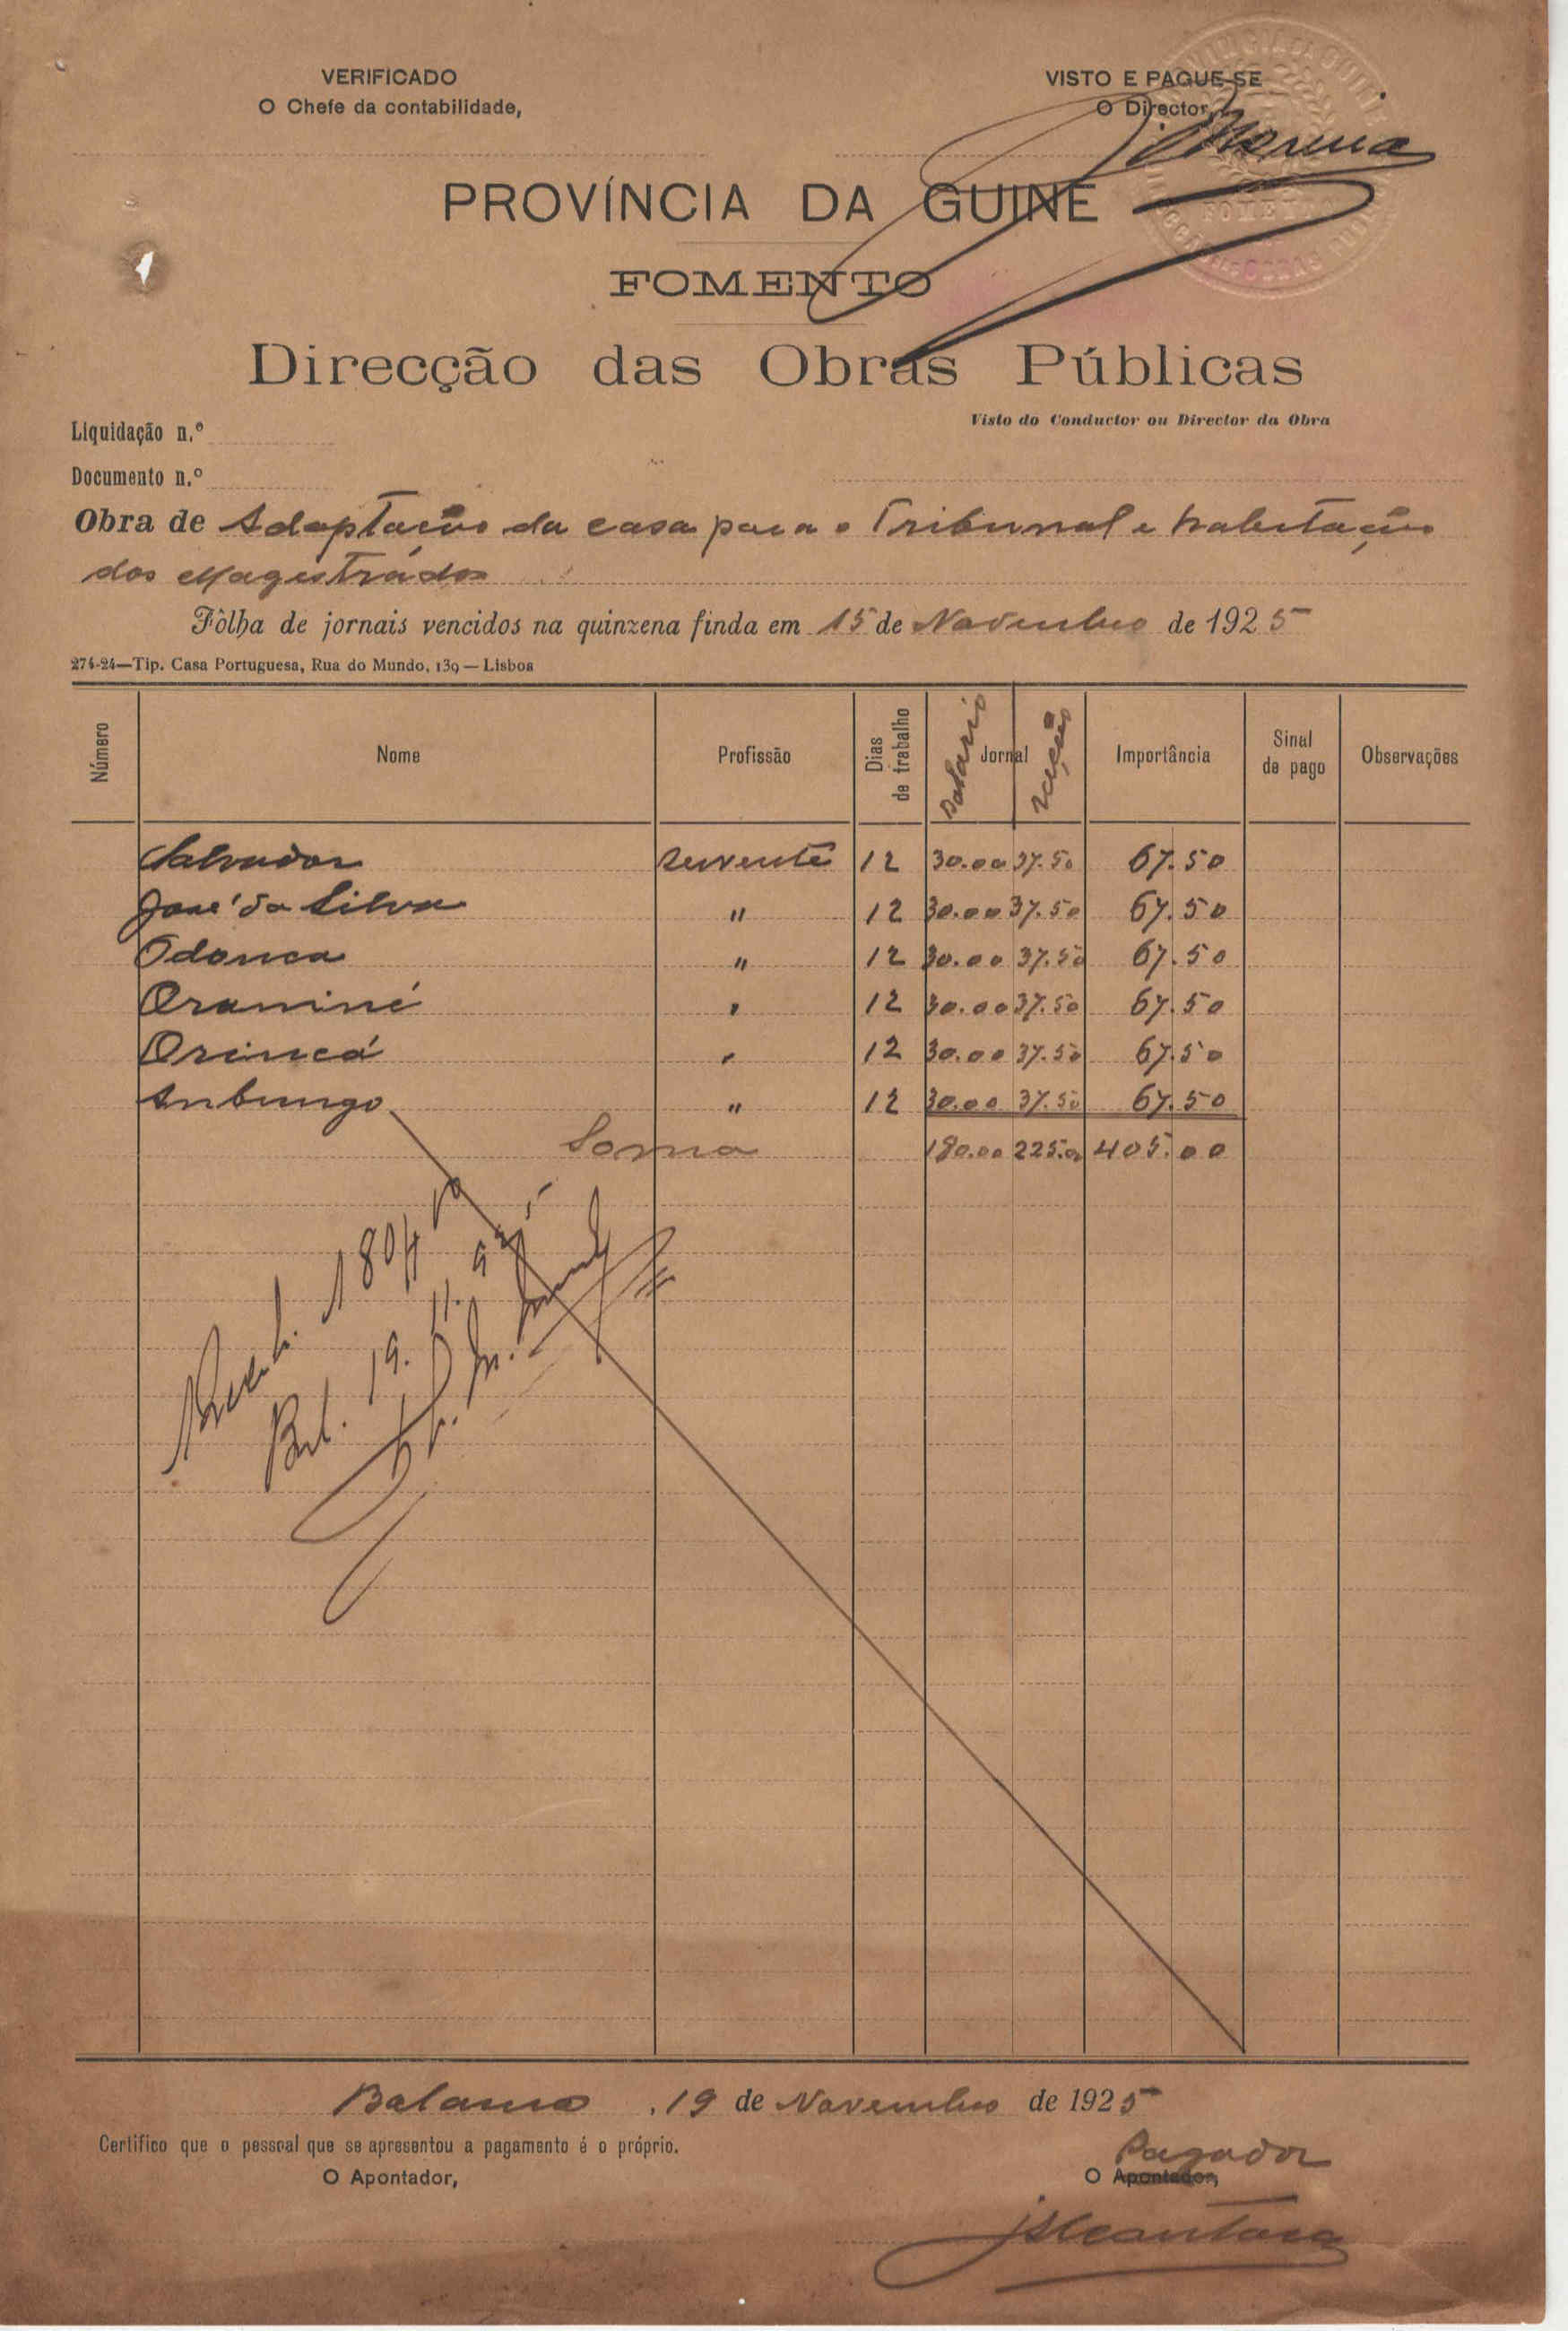 VERIFICADO
O Chefe da contabilidade,
VISTO E PAGUE-SE
O Director,
PROVÍNCIA DA GUINÉ
FOMENTO
Direcção das Obras Públicas
Liquidação n.º
Visto do Conductor ou Director da Obra
Documento n.º
Obra de Adaptação da casa para o Tribunal e habitação
dos Magistrados
Fôlha de jornais vencidos na quinzena finda em 15 de Novembro de 1925
274-24—Tip. Casa Portuguesa, Rua do Mundo, 139 — Lisboa
Número Nome Profissão Dias de trabalho Jornal Salario ração Importância Sinal de pago Observações
Salvador servente 12 30.00 37.50 67.50
José da Silva " 12 30.00 37.50 67.50
Odonca " 12 30.00 37.50 67.50
Oraniné " 12 30.00 37.50 67.50
Orincá " 12 30.00 37.50 67.50
Anbungo " 12 30.00 37.50 67.50
Soma 180.00 225.00 405.00
19. 11.
Bolama, 19 de Novembro de 1925
Certifico que o pessoal que se apresentou a pagamento é o próprio.
Pagador
O Apontador,
O Apontador,
J Alcantara